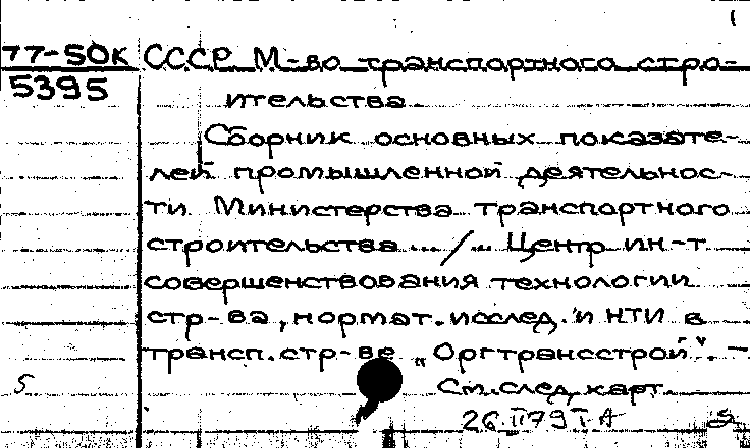 77-SOK СССР М-во транспортного стро-
5395
ительства
Сборник основных показате-
лей промышленной деятельнос-
ти Министерства транспортного
строительства .../... Центр ин-т
совершенствования технологии
стр-ва, нормат. исслед. и НТИ в
трансп. стр-ве „Оргтрансстрой". -
5 См. след. карт.
26 II 79